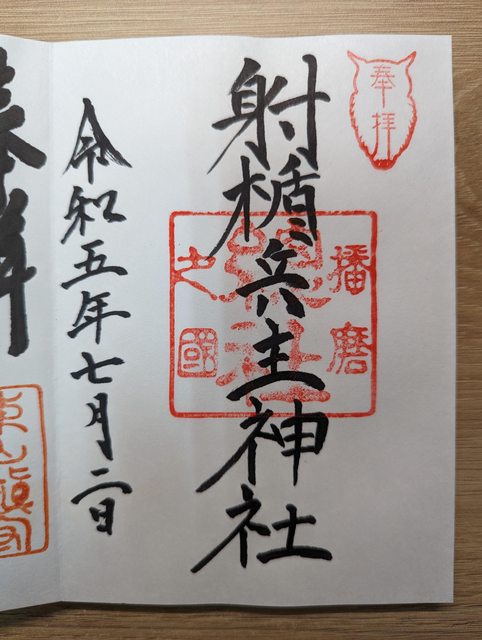 奉拝
射楯兵主神社
播磨
總社
之國
令和五年七月二日